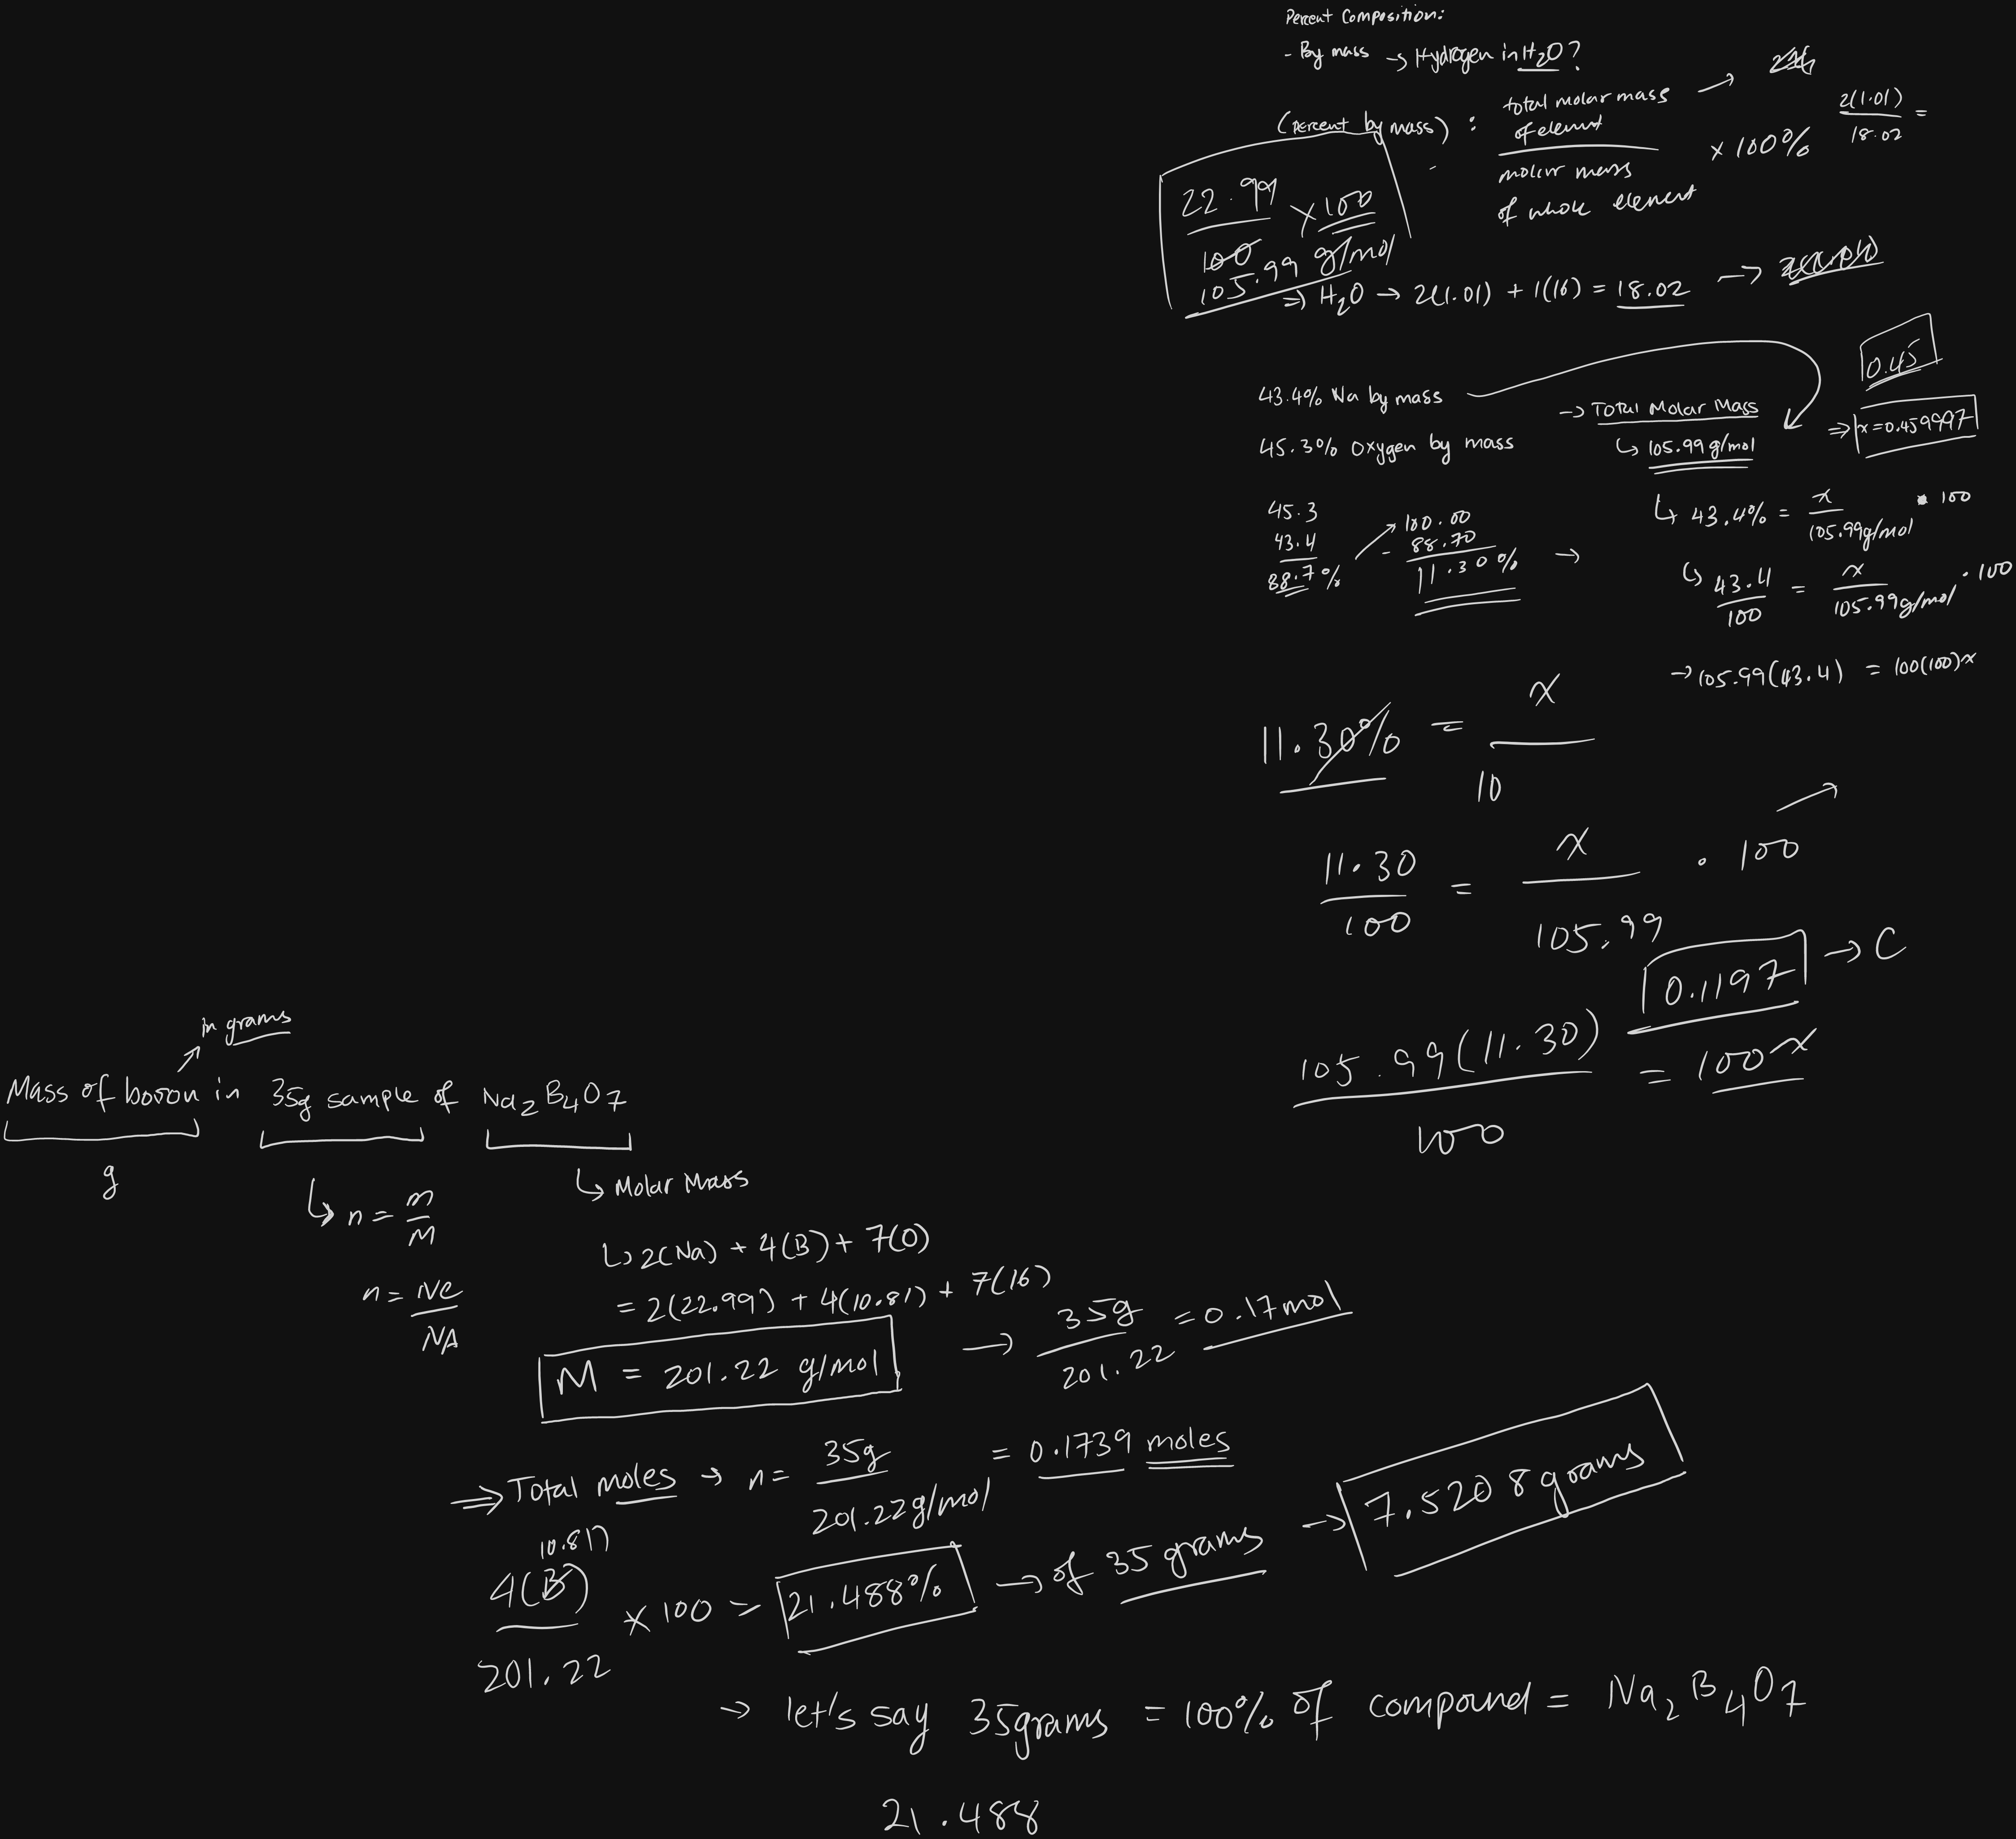 Percent Composition:
- By mass → Hydrogen in H₂O?
(percent by mass) : total molar mass of elemnt / molar mass of whole element × 100% 2(1.01) / 18.02 =
22.99 / 105.99 g/mol × 100
⇒ H₂O → 2(1.01) + 1(16) = 18.02 →
0.45
43.4% Na by mass → Total Molar Mass
⇒ x=0.459997
45.3% Oxygen by mass ↳ 105.99 g/mol
45.3
43.4
88.7%
100.00
- 88.70
11.30% →
↳ 43.4% = x / 105.99g/mol • 100
↳ 43.4 / 100 = x / 105.99g/mol • 100
→ 105.99(43.4) = 100(100)x
11.30% = x / 10
11.30 / 100 = x / 105.99 • 100
0.1197 → C
105.99(11.30) / 100 = 100x
in grams
Mass of boron in 35g sample of Na₂B₄O₇
g
↳ n = m / M
n = Ne / NA
↳ Molar Mass
↳ 2(Na) + 4(B) + 7(O)
= 2(22.99) + 4(10.81) + 7(16)
M = 201.22 g/mol → 35g / 201.22 = 0.17mol
⇒ Total moles → n = 35g / 201.22g/mol = 0.1739 moles
10.81)
4(B) / 201.22 × 100 = 21.488% → of 35 grams → 7.5208 grams
→ let's say 35grams = 100% of compound = Na₂B₄O₇
21.488